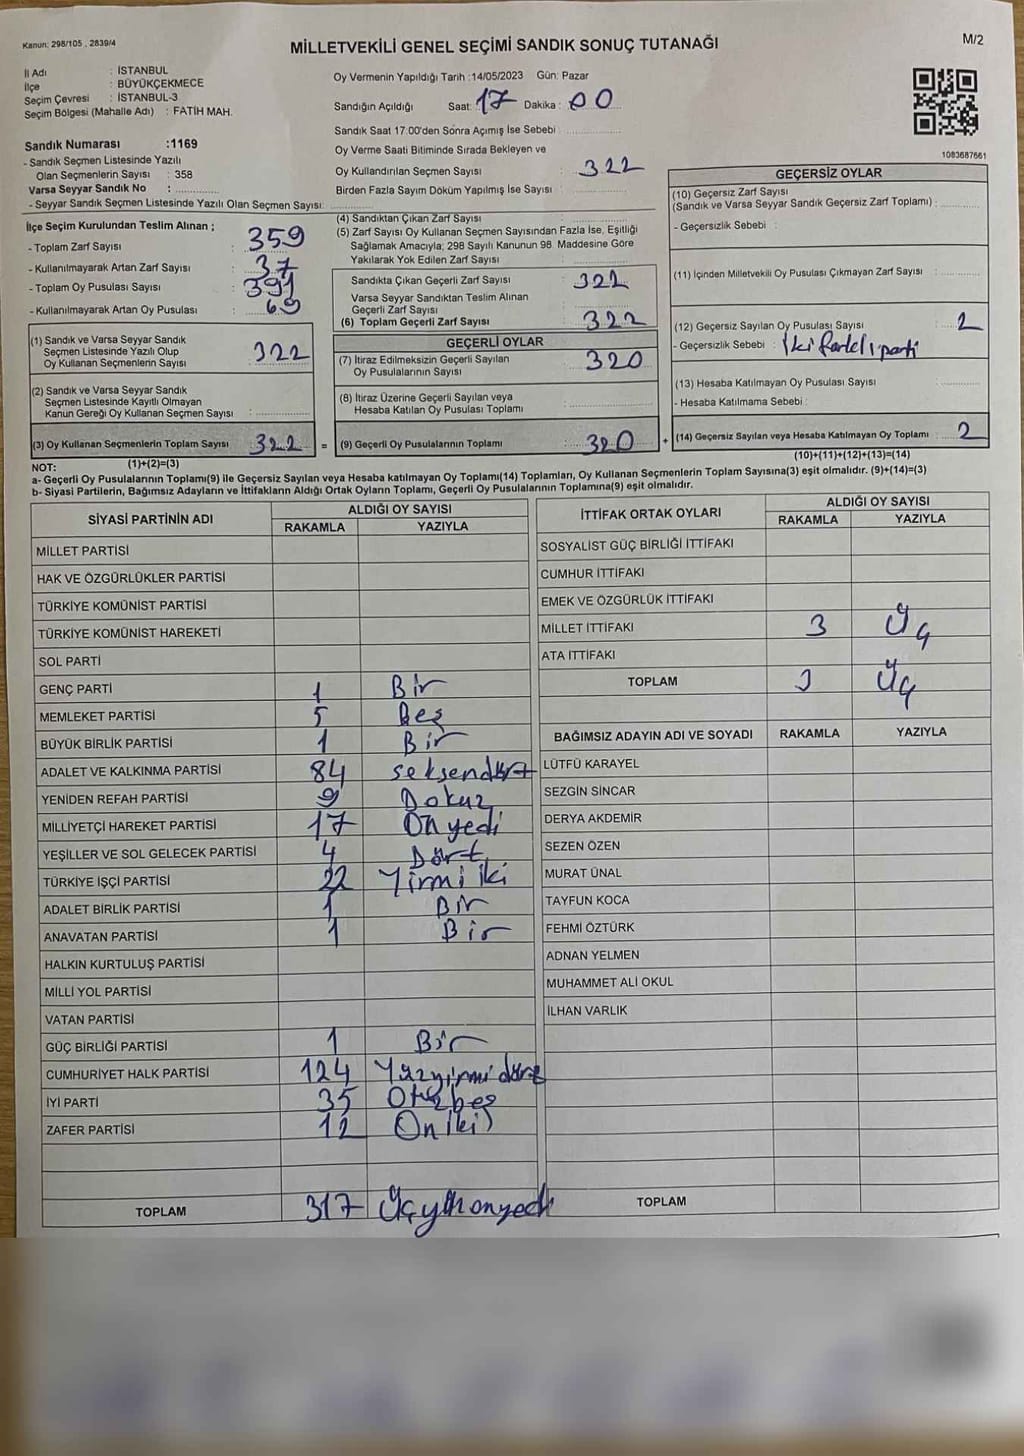 Kanun: 298/105 , 2839/4
MİLLETVEKİLİ GENEL SEÇİMİ SANDIK SONUÇ TUTANAĞI
M/2
İl Adı : İSTANBUL
İlçe : BÜYÜKÇEKMECE
Seçim Çevresi : İSTANBUL-3
Seçim Bölgesi (Mahalle Adı) : FATİH MAH.
Sandık Numarası :1169
- Sandık Seçmen Listesinde Yazılı
Olan Seçmenlerin Sayısı : 358
Varsa Seyyar Sandık No :
- Seyyar Sandık Seçmen Listesinde Yazılı Olan Seçmen Sayısı:
Oy Vermenin Yapıldığı Tarih :14/05/2023 Gün: Pazar
Sandığın Açıldığı Saat: 17 Dakika : 00
Sandık Saat 17:00'den Sonra Açımış İse Sebebi :
Oy Verme Saati Bitiminde Sırada Bekleyen ve
Oy Kullandırılan Seçmen Sayısı : 322
Birden Fazla Sayım Döküm Yapılmış İse Sayısı :
1083687661
İlçe Seçim Kurulundan Teslim Alınan ;
- Toplam Zarf Sayısı : 359
- Kullanılmayarak Artan Zarf Sayısı : 37
- Toplam Oy Pusulası Sayısı : 391
- Kullanılmayarak Artan Oy Pusulası : 69
(1) Sandık ve Varsa Seyyar Sandık
Seçmen Listesinde Yazılı Olup
Oy Kullanan Seçmenlerin Sayısı : 322
(2) Sandık ve Varsa Seyyar Sandık
Seçmen Listesinde Kayıtlı Olmayan
Kanun Gereği Oy Kullanan Seçmen Sayısı :
(3) Oy Kullanan Seçmenlerin Toplam Sayısı : 322 =
(4) Sandıktan Çıkan Zarf Sayısı :
(5) Zarf Sayısı Oy Kullanan Seçmen Sayısından Fazla İse, Eşitliği
Sağlamak Amacıyla; 298 Sayılı Kanunun 98. Maddesine Göre
Yakılarak Yok Edilen Zarf Sayısı :
Sandıkta Çıkan Geçerli Zarf Sayısı : 322
Varsa Seyyar Sandıktan Teslim Alınan
Geçerli Zarf Sayısı :
(6) Toplam Geçerli Zarf Sayısı : 322
GEÇERLİ OYLAR
(7) İtiraz Edilmeksizin Geçerli Sayılan
Oy Pusulalarının Sayısı : 320
(8) İtiraz Üzerine Geçerli Sayılan veya
Hesaba Katılan Oy Pusulası Toplamı :
(9) Geçerli Oy Pusulalarının Toplamı : 320 +
GEÇERSİZ OYLAR
(10) Geçersiz Zarf Sayısı
(Sandık ve Varsa Seyyar Sandık Geçersiz Zarf Toplamı) :
- Geçersizlik Sebebi :
(11) İçinden Milletvekili Oy Pusulası Çıkmayan Zarf Sayısı :
(12) Geçersiz Sayılan Oy Pusulası Sayısı : 2
- Geçersizlik Sebebi : İki farklı parti
(13) Hesaba Katılmayan Oy Pusulası Sayısı :
- Hesaba Katılmama Sebebi :
(14) Geçersiz Sayılan veya Hesaba Katılmayan Oy Toplamı : 2
NOT: (1)+(2)=(3)
(10)+(11)+(12)+(13)=(14)
a- Geçerli Oy Pusulalarının Toplamı(9) ile Geçersiz Sayılan veya Hesaba katılmayan Oy Toplamı(14) Toplamları, Oy Kullanan Seçmenlerin Toplam Sayısına(3) eşit olmalıdır. (9)+(14)=(3)
b- Siyasi Partilerin, Bağımsız Adayların ve İttifakların Aldığı Ortak Oyların Toplamı, Geçerli Oy Pusulalarının Toplamına(9) eşit olmalıdır.
SİYASİ PARTİNİN ADI
ALDIĞI OY SAYISI
RAKAMLA YAZIYLA
MİLLET PARTİSİ
HAK VE ÖZGÜRLÜKLER PARTİSİ
TÜRKİYE KOMÜNİST PARTİSİ
TÜRKİYE KOMÜNİST HAREKETİ
SOL PARTİ
GENÇ PARTİ 1 Bir
MEMLEKET PARTİSİ 5 Beş
BÜYÜK BİRLİK PARTİSİ 1 Bir
ADALET VE KALKINMA PARTİSİ 84 Seksendört
YENİDEN REFAH PARTİSİ 9 Dokuz
MİLLİYETÇİ HAREKET PARTİSİ 17 Onyedi
YEŞİLLER VE SOL GELECEK PARTİSİ 4 Dört
TÜRKİYE İŞÇİ PARTİSİ 22 Yirmi iki
ADALET BİRLİK PARTİSİ 1 Bir
ANAVATAN PARTİSİ 1 Bir
HALKIN KURTULUŞ PARTİSİ
MİLLİ YOL PARTİSİ
VATAN PARTİSİ
GÜÇ BİRLİĞİ PARTİSİ 1 Bir
CUMHURİYET HALK PARTİSİ 124 Yüzyirmi dört
İYİ PARTİ 35 Otuzbeş
ZAFER PARTİSİ 12 Oniki
TOPLAM 317 Üçyüzonyedi
İTTİFAK ORTAK OYLARI
ALDIĞI OY SAYISI
RAKAMLA YAZIYLA
SOSYALİST GÜÇ BİRLİĞİ İTTİFAKI
CUMHUR İTTİFAKI
EMEK VE ÖZGÜRLÜK İTTİFAKI
MİLLET İTTİFAKI 3 Üç
ATA İTTİFAKI
TOPLAM 3 Üç
BAĞIMSIZ ADAYIN ADI VE SOYADI RAKAMLA YAZIYLA
LÜTFÜ KARAYEL
SEZGİN SİNCAR
DERYA AKDEMİR
SEZEN ÖZEN
MURAT ÜNAL
TAYFUN KOCA
FEHMİ ÖZTÜRK
ADNAN YELMEN
MUHAMMET ALİ OKUL
İLHAN VARLIK
TOPLAM